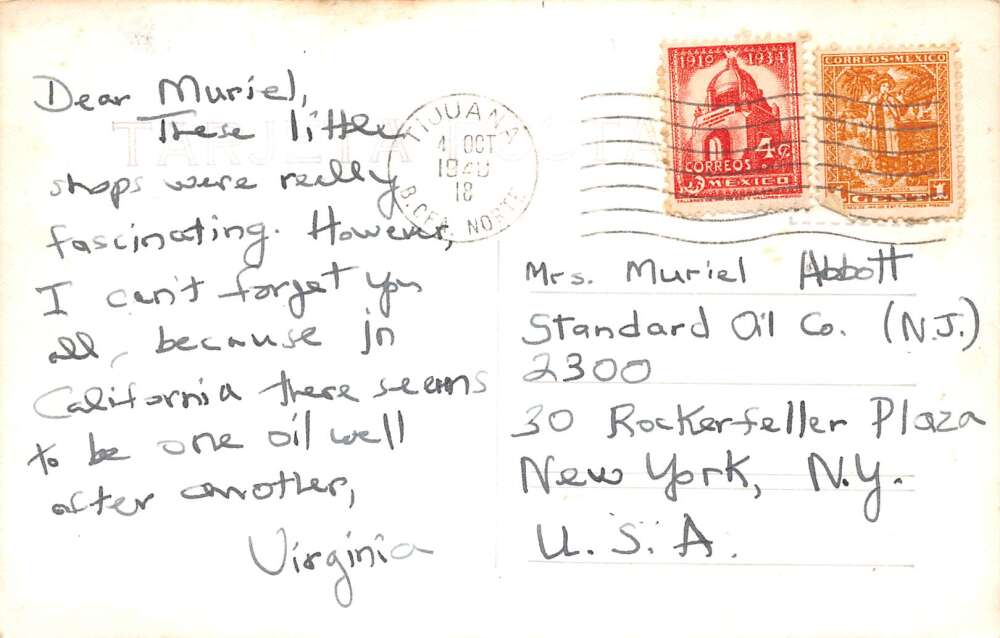 TARJETA POSTAL
Dear Muriel,
These little
shops were really
fascinating. However,
I can't forget you
all, because in
California there seems
to be one oil well
after another,
Virginia
TIJUANA
4 OCT
18
B.CFA. NORTE
1910 1934
CORREOS 4¢
MEXICO
CORREOS-MEXICO
1
Mrs. Muriel Abbott
Standard Oil Co. (N.J.)
2300
30 Rockerfeller Plaza
New York, N.Y.
U.S.A.